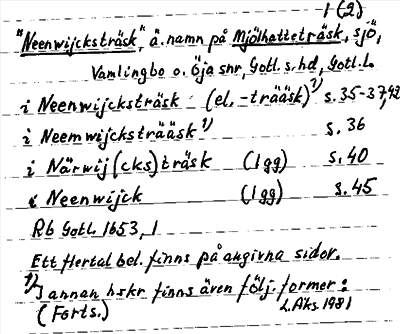 1 (2)
"Neenwijcksträsk", ä. namn på Mjölhatteträsk, sjö,
Vamlingbo o. Öja snr, Gotl. s. hd, Gotl. L.
i Neenwijcksträsk (el. -trääsk)¹⁾ s. 35-37,42
i Neemwijcksträäsk¹⁾ s. 36
i Närwij(cks)träsk (1 gg) s. 40
i Neenwijck (1 gg) s. 45
Rb Gotl. 1653, 1
Ett flertal bel. finns på angivna sidor.
¹⁾ I annan hskr finns även följ. former:
(Forts.) L. Aks. 1981